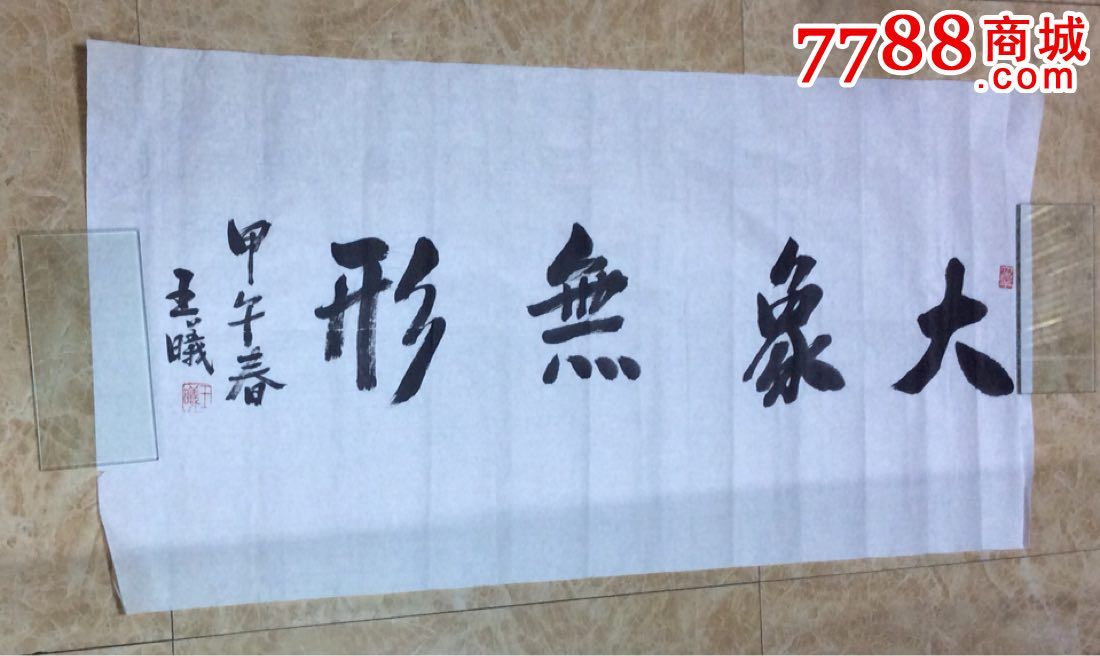 7788商城
.com
大象無形
甲午春
王曦